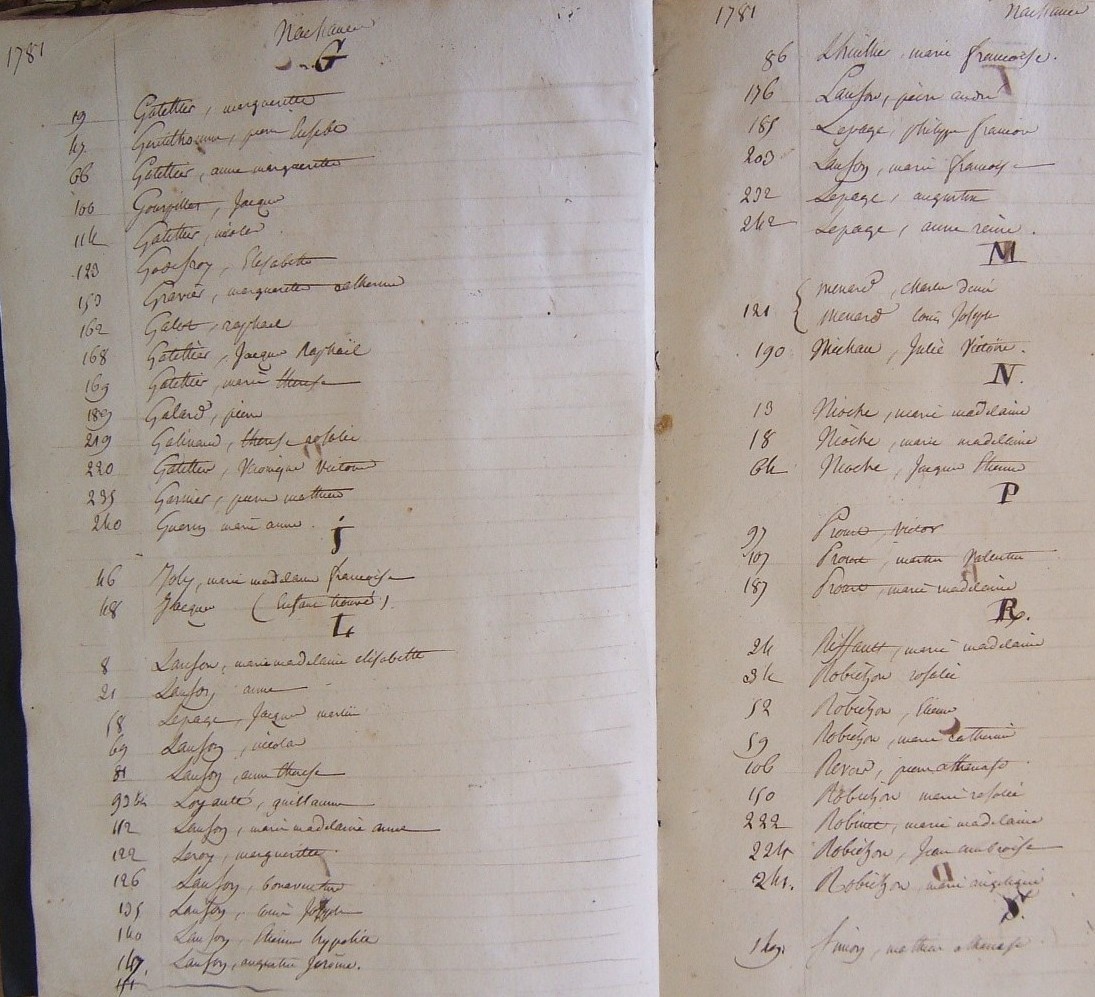 1781 Naissance
G
19 Gatellier, margueritte
47 pierre Eusebe
66 Gatellier, anne margueritte
100 Gourvillet, Jacque
114 Gatellier, nicolas
123 Godefroy, Elisabette
153 Gravier, margueritte catherine
162 Galot, raphael
168 Gatellier, Jacque Raphaël
169 Gatellier, marie therese
189 Galard, pierre
219 Galineau, therese rosalie
220 Gatellier, Veronique Victoire
235 Garnier, pierre mathieu
240 Guerin marie anne.
J
46 Joly, marie madelaine francoise
48 Jacque (Enfant trouvé).
L
8 Lanson, marie madelaine elisabette
21 Lanson anne
58 Lepage, Jacque martin
69 Lanson, nicolas
81 Lanson, anne therese
93 bis Loyauté, guillaume
112 Lanson, marie madelaine anne
122 Leroy, margueritte.
126 Lanson, bonaventure
135 Lanson, Louis Joseph
140 Lanson, Etienne hypolite
147. Lanson, augustin Jerome.
1781 Naissance
86 marie francoise.
176 Lanson, pierre andré
185 Lepage, philippe francois
203 Lanson, marie francoise
232 Lepage, augustin
242 Lepage, anne reine.
M
121 { menard, charle denis
menard Louis Joseph
190 Michau, Julie Victoire.
N.
13 Nioche, marie madelaine
18 Nioche, marie madelaine
64 Nioche, Jacque Etienne
P
97 Proust, Victor
107 Proust, martin Valentin
187 Proust, marie madelaine
R.
24 Riffault, marie madelaine
34 Robichon rosalie
52 Robichon, Etienne
59 Robichon, marie catherine
106 pierre athanase
150 Robichon marie rosalie
222 Robinet, marie madelaine
224 Robichon, Jean ambroise
241. Robichon, marie angelique
S.
Simon, mathieu athanase